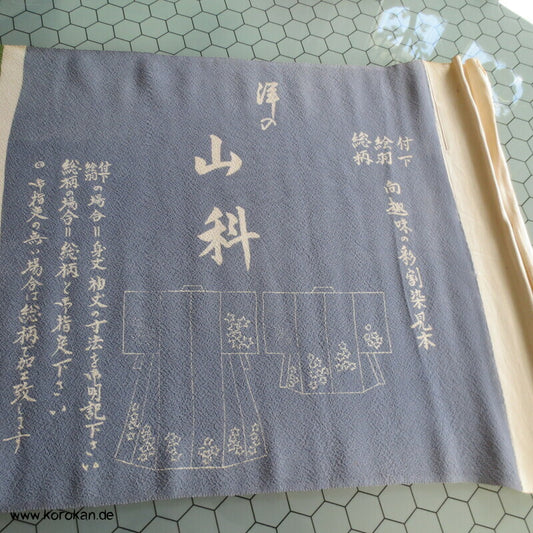 付下
絵羽
総柄
向趣味の彩割染見本
洋の
山科
付下
絵羽
の場合=身丈袖丈の寸法を御明記下さい
総柄の場合=総柄と御指定下さい
御指定の無い場合は総柄で加工致します
www.korokan.de